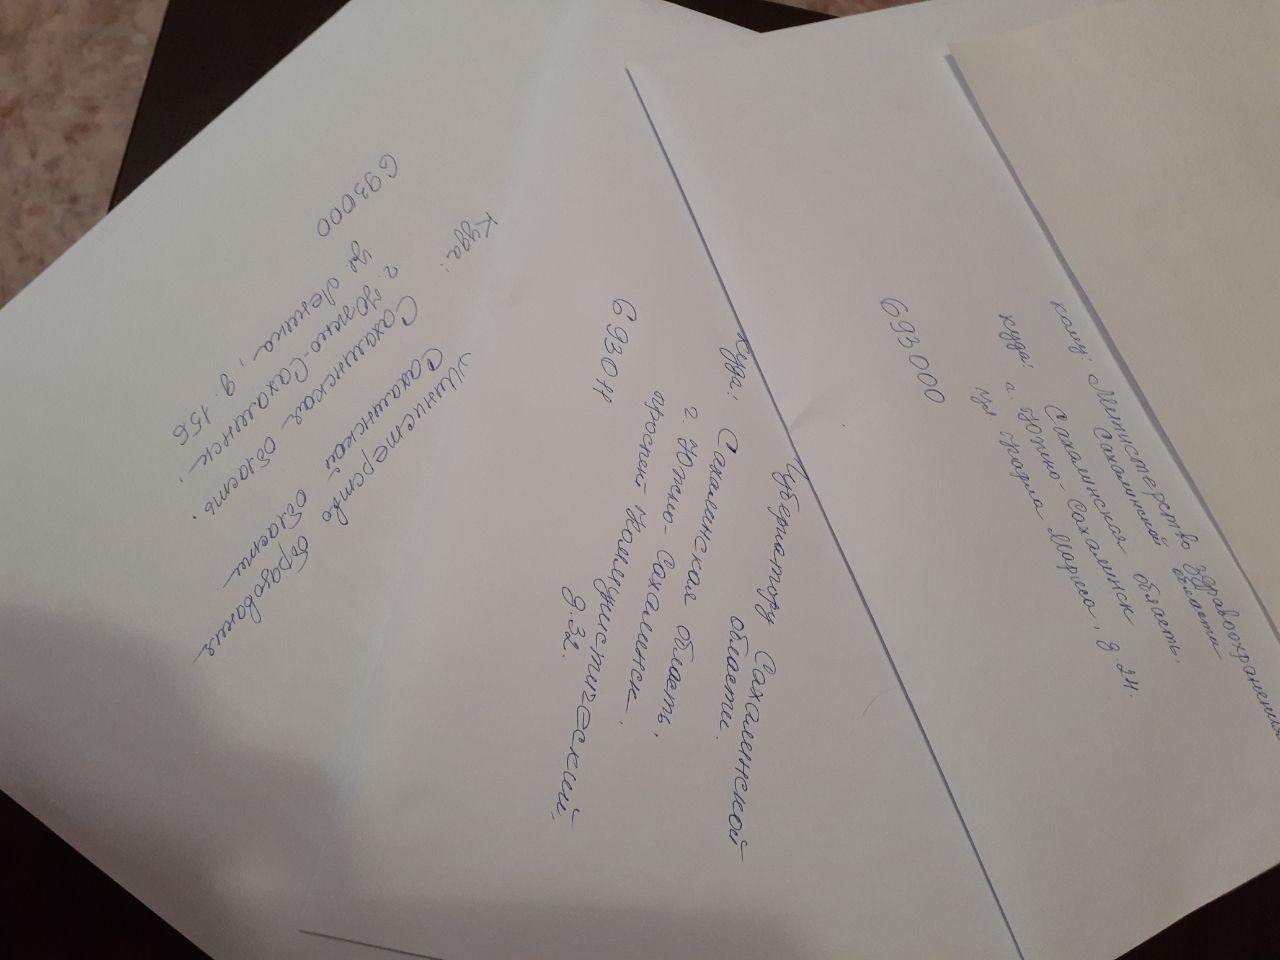 Министерство образования
Сахалинской области
Куда:
Сахалинская область.
г. Южно-Сахалинск.
ул Ленина, д. 156
693000
Губернатору Сахалинской
области.
Куда: Сахалинская область,
г. Южно-Сахалинск,
проспект Коммунистический,
д. 32.
693011
кому: Министерство здравоохранения
Сахалинской области
Сахалинская область.
куда: г. Южно-Сахалинск
ул Карла Маркса, д 24.
693000